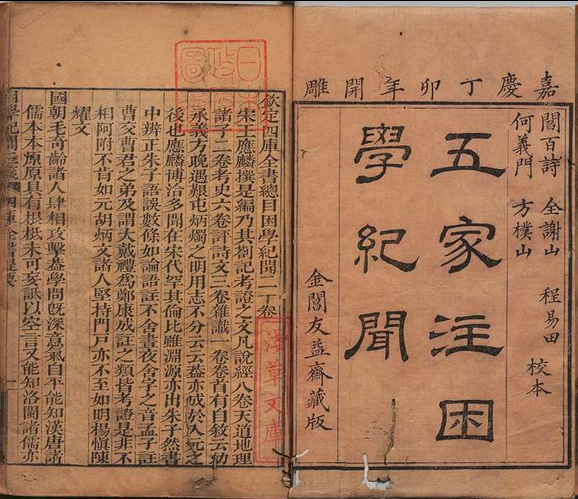 嘉慶丁卯年開雕
閻百詩 全謝山 程易田
何義門 方樸山 校本
五家注困
學紀聞
金閶友益齋藏版
欽定四庫全書總目困學紀聞二十卷
宋王應麟撰是編乃其劄記考證之文凡說經八卷天道地理
諸子二卷考史六卷評詩文三卷雜識一卷卷首有自敘云幼
承義方晚遇艱屯炳燭之明用志不分云云蓋亦成於入元之
後也應麟博洽多聞在宋代罕其倫比雖淵源亦出朱子然書
中辨正朱子語誤數條如論語註不舍晝夜舍字之音孟子註
曹交曹君之弟及謂大戴禮為鄭康成註之類皆考證是非不
相阿附不肯如元胡炳文諸人堅持門戶亦不至如明楊慎陳
耀文
國朝毛奇齡諸人肆相攻擊蓋學問既深意氣自平能知漢唐諸
儒本本原原具有根柢未可妄詆以空言又能知洛閩諸儒亦
淺草文庫